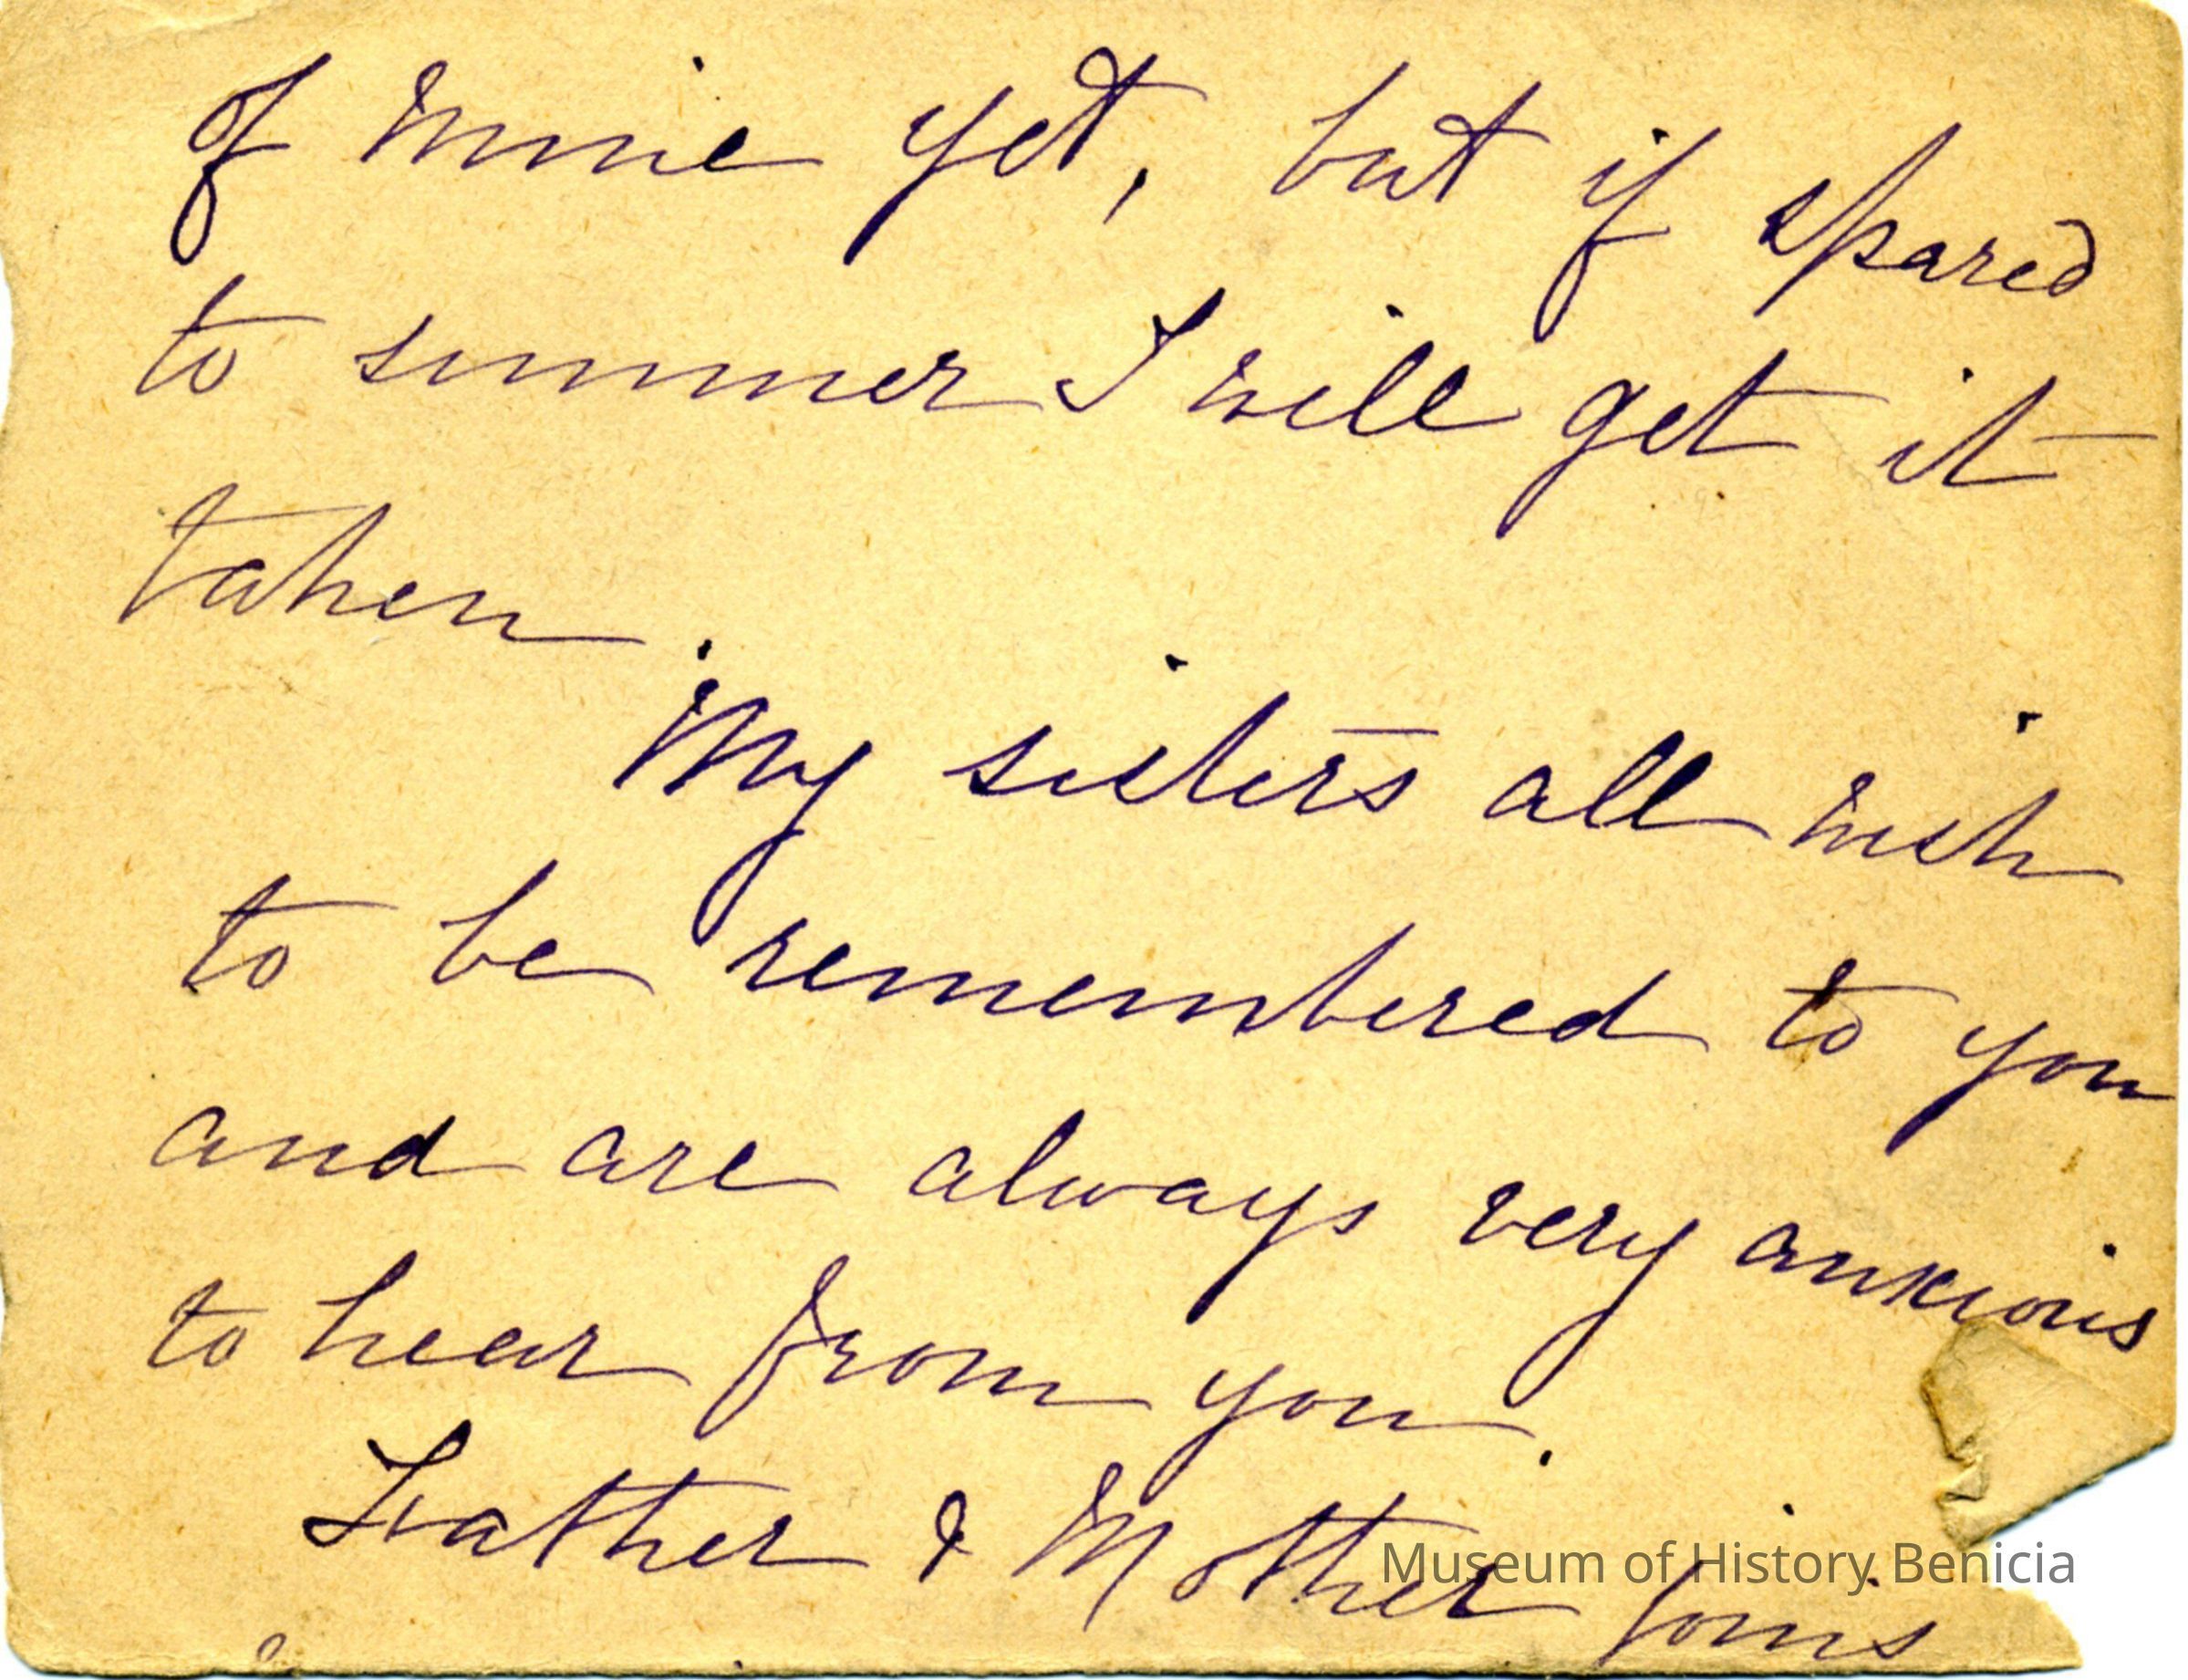 of mine yet, but if spared
to summer I will get it
taken.
My sisters all wish
to be remembered to you
and are always very anxious
to hear from you.
Father & Mother joins
Museum of History Benicia